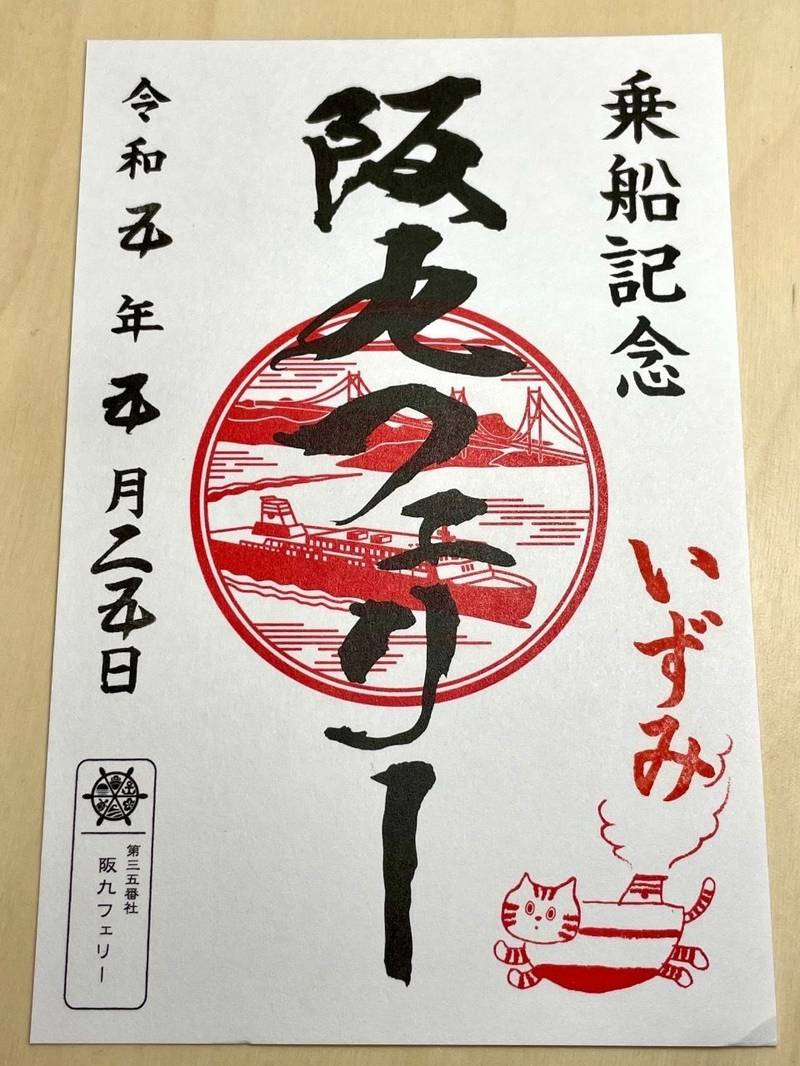 乗船記念
いずみ
阪九フェリー
令和五年五月二五日
第三五番社
阪九フェリー